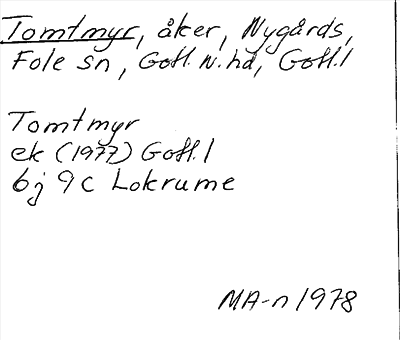 Tomtmyr, åker, Nygårds,
Fole sn, Gotl. N. hd, Gotl. l
Tomtmyr
ek (1977) Gotl. l
6j 9c Lokrume
MA-n 1978